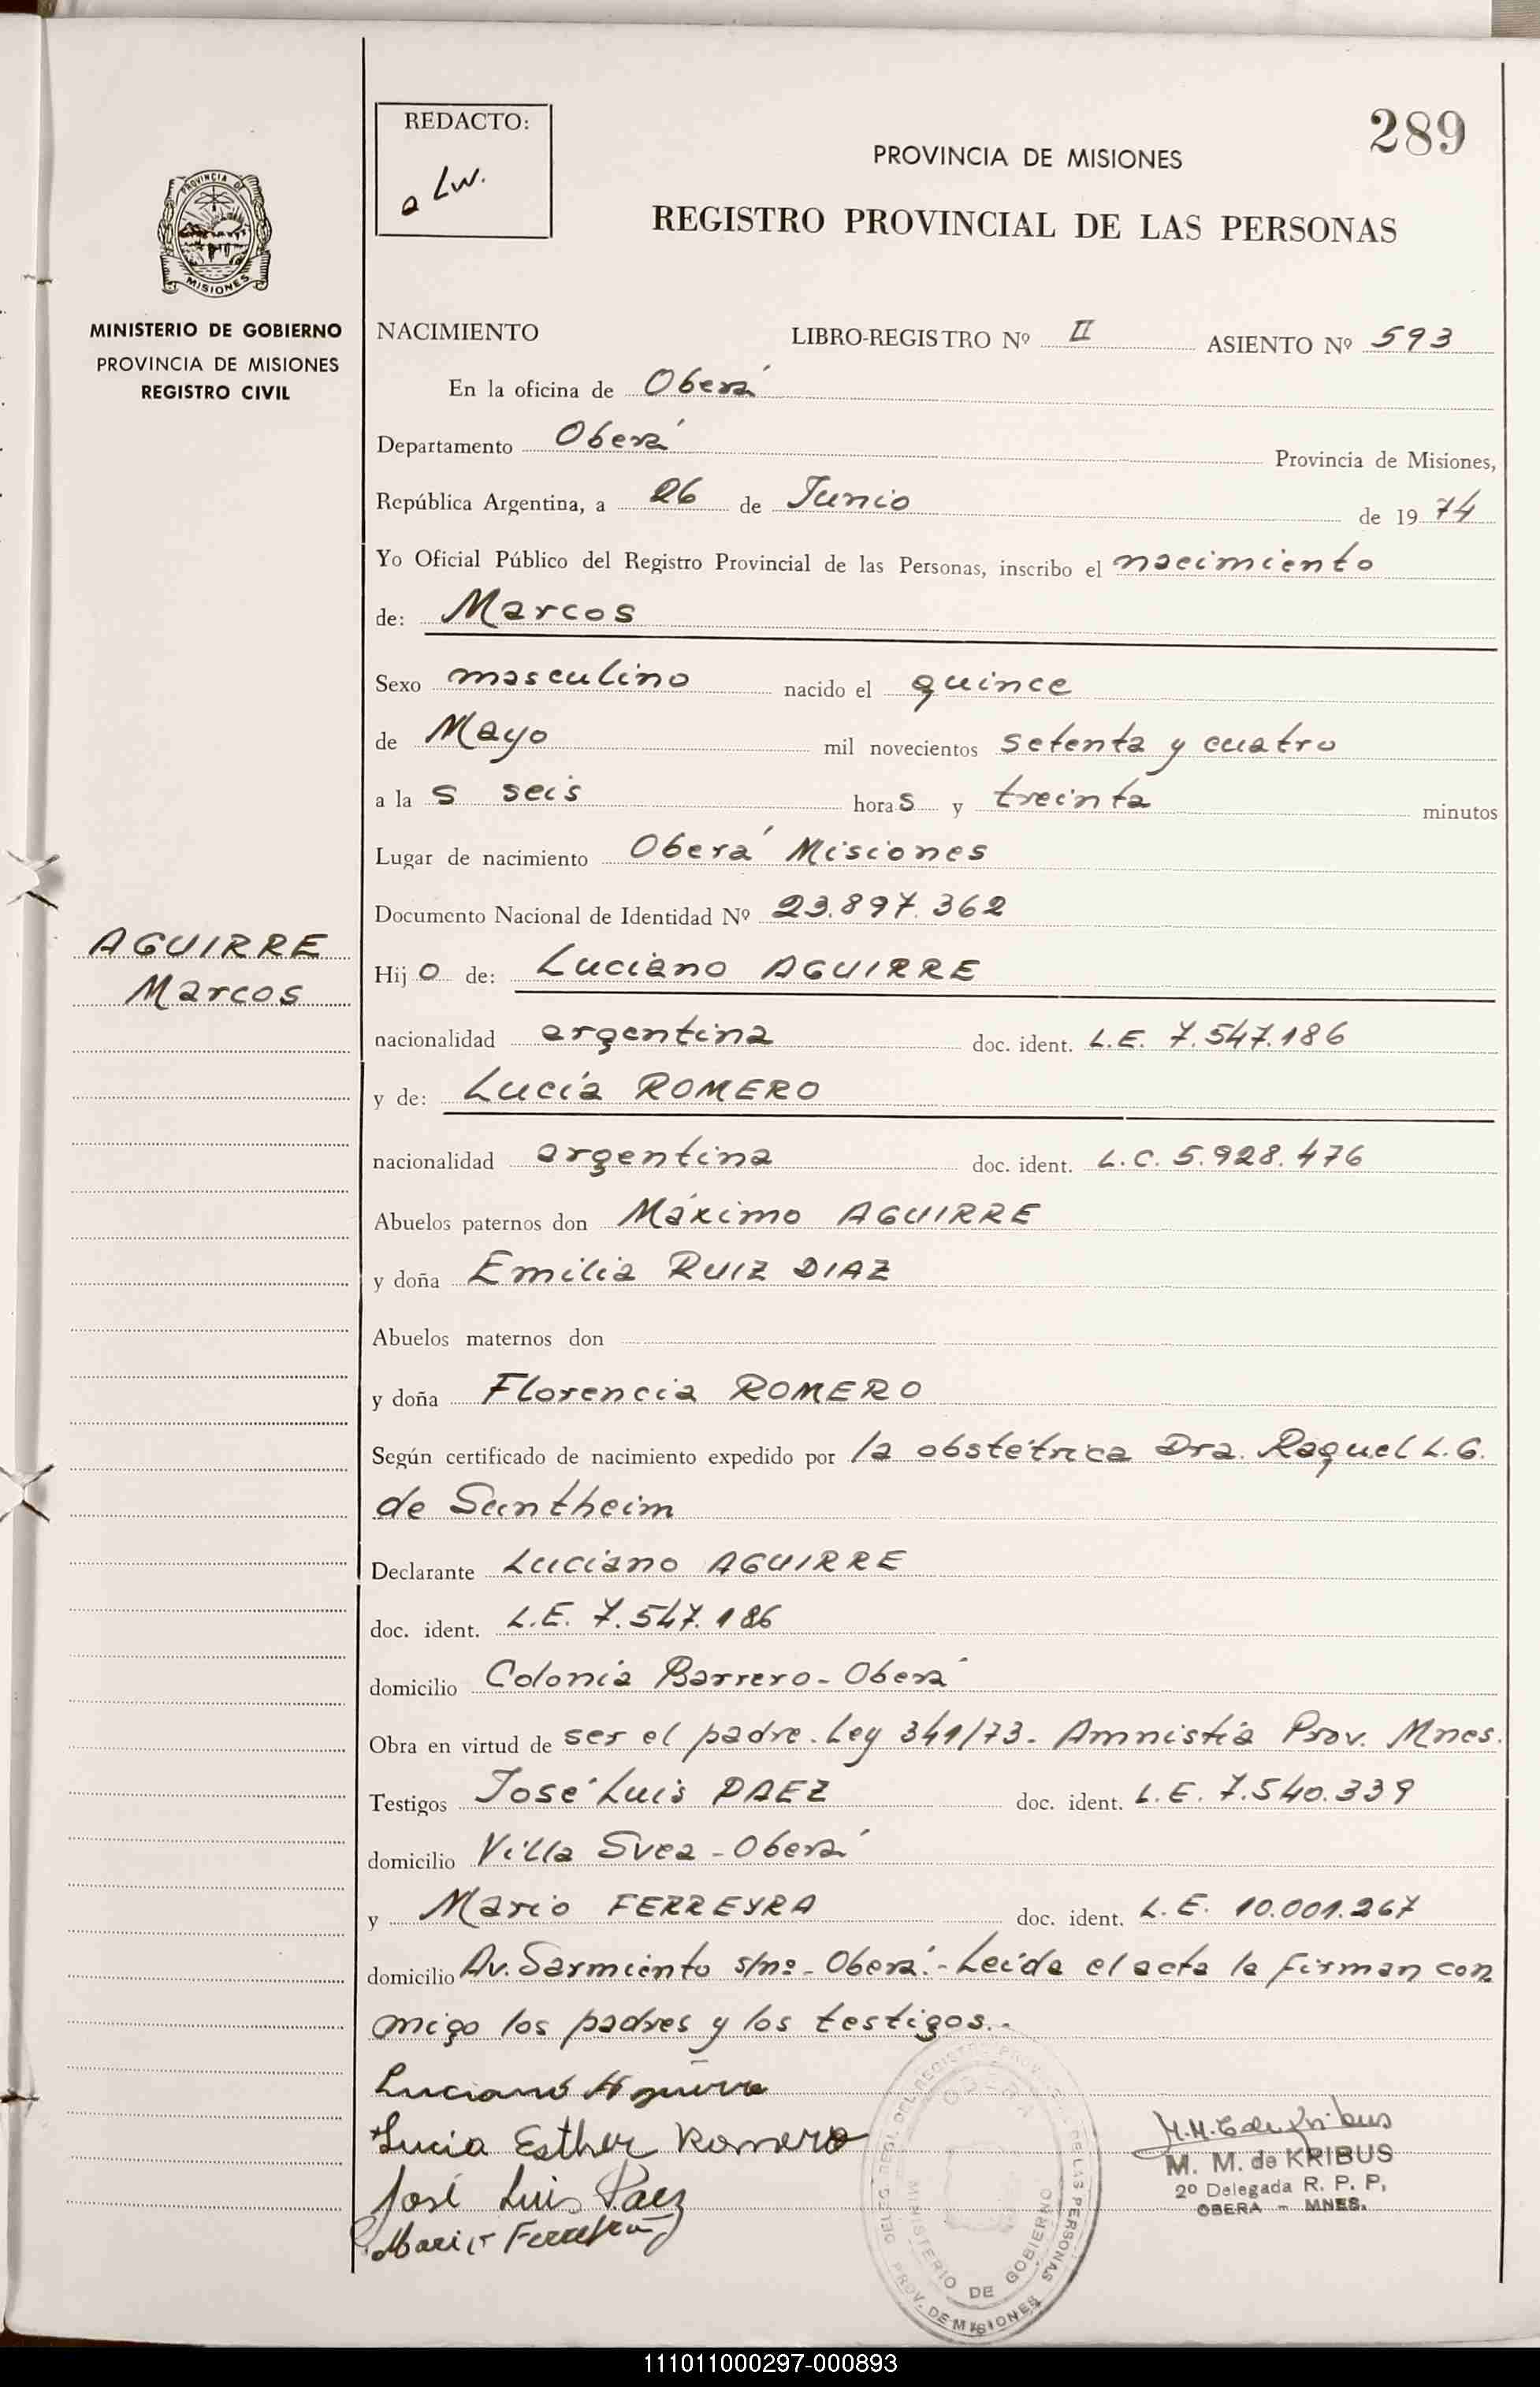 REDACTO:
a Lw.
289
PROVINCIA DE MISIONES
REGISTRO PROVINCIAL DE LAS PERSONAS
PROVINCIA DE
MISIONES
MINISTERIO DE GOBIERNO
PROVINCIA DE MISIONES
REGISTRO CIVIL
NACIMIENTO LIBRO-REGISTRO Nº II ASIENTO Nº 593
En la oficina de Oberá
Departamento Oberá Provincia de Misiones,
República Argentina, a 26 de Junio de 1974
Yo Oficial Público del Registro Provincial de las Personas, inscribo el nacimiento
de: Marcos
Sexo masculino nacido el quince
de Mayo mil novecientos setenta y cuatro
a la s seis horas y treinta minutos
Lugar de nacimiento Oberá Misiones
Documento Nacional de Identidad Nº 23.897.362
AGUIRRE
Marcos
Hijo de: Luciano AGUIRRE
nacionalidad argentina doc. ident. L.E. 7.547.186
y de: Lucía ROMERO
nacionalidad argentina doc. ident. L.C. 5.928.476
Abuelos paternos don Máximo AGUIRRE
y doña Emilia RUIZ DIAZ
Abuelos maternos don
y doña Florencia ROMERO
Según certificado de nacimiento expedido por la obstétrica Dra. Raquel L.G.
de Suntheim
Declarante Luciano AGUIRRE
doc. ident. L.E. 7.547.186
domicilio Colonia Barrero - Oberá
Obra en virtud de ser el padre. Ley 341/73. Amnistía Prov. Mnes.
Testigos José Luis PAEZ doc. ident. L.E. 7.540.339
domicilio Villa Svea - Oberá
y Mario FERREYRA doc. ident. L.E. 10.001.267
domicilio Av. Sarmiento s/nº - Oberá.- Leída el acta la firman con
migo los padres y los testigos.-
Luciano Aguirre
Lucia Esther Romero
José Luis Paez
Mario Ferreyra
M. M. de KRIBUS
2º Delegada R. P. P.
OBERA - MNES.
OBERA
MINISTERIO DE GOBIERNO
PROV. DE MISIONES
111011000297-000893